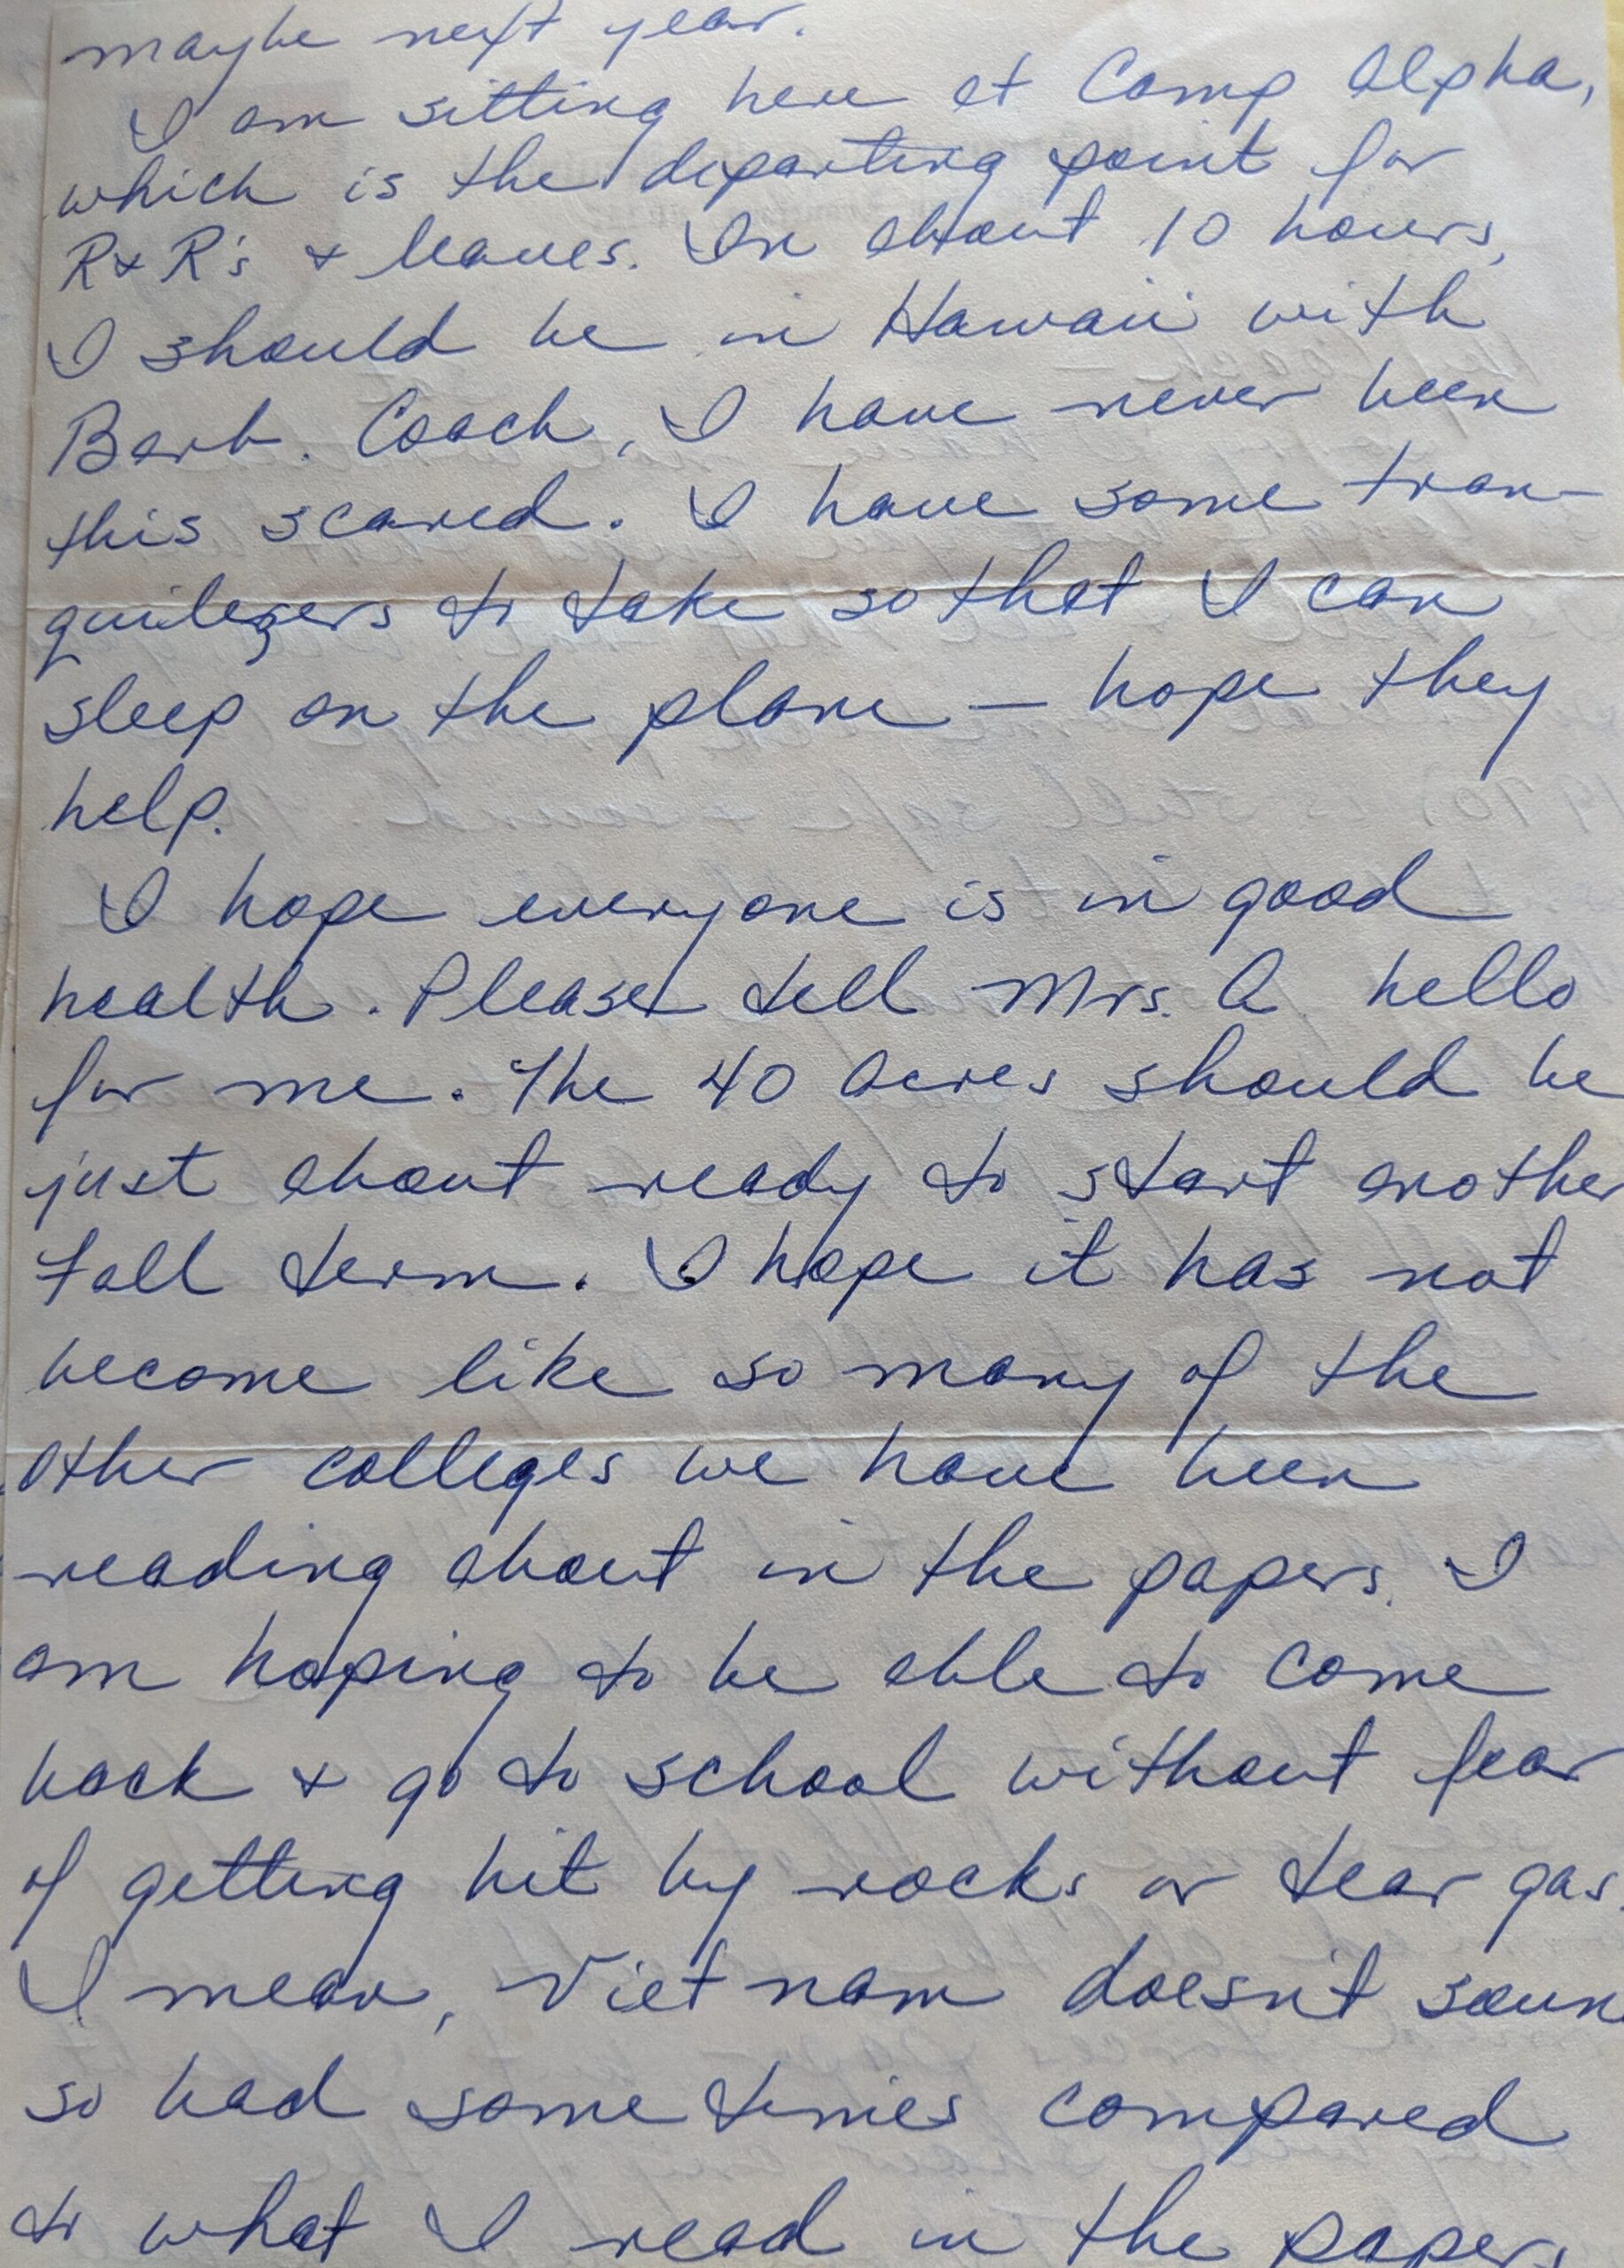 maybe next year.
I am sitting here at Camp Alpha,
which is the departing point for
R+R's + leaves. In about 10 hours,
I should be in Hawaii with
Barb. Coach, I have never been
this scared. I have some tran-
quilezers to take so that I can
sleep on the plane — hope they
help.
I hope everyone is in good
health. Please tell Mrs. A. hello
for me. The 40 Acres should be
just about ready to start another
Fall term. I hope it has not
become like so many of the
other colleges we have been
reading about in the papers. I
am hoping to be able to come
back + go to school without fear
of getting hit by rocks or tear gas.
I mean, Viet nam doesn't soun
so bad some times compared
to what I read in the papers